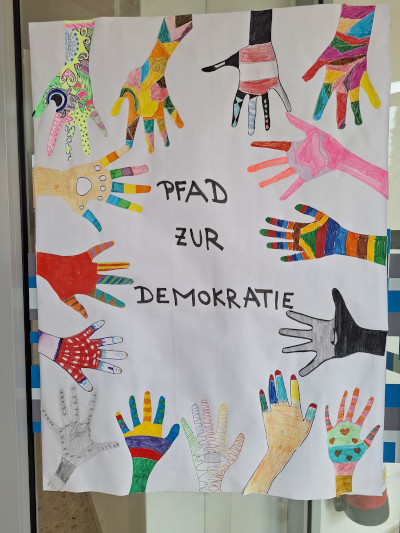 PFAD
ZUR
DEMOKRATIE